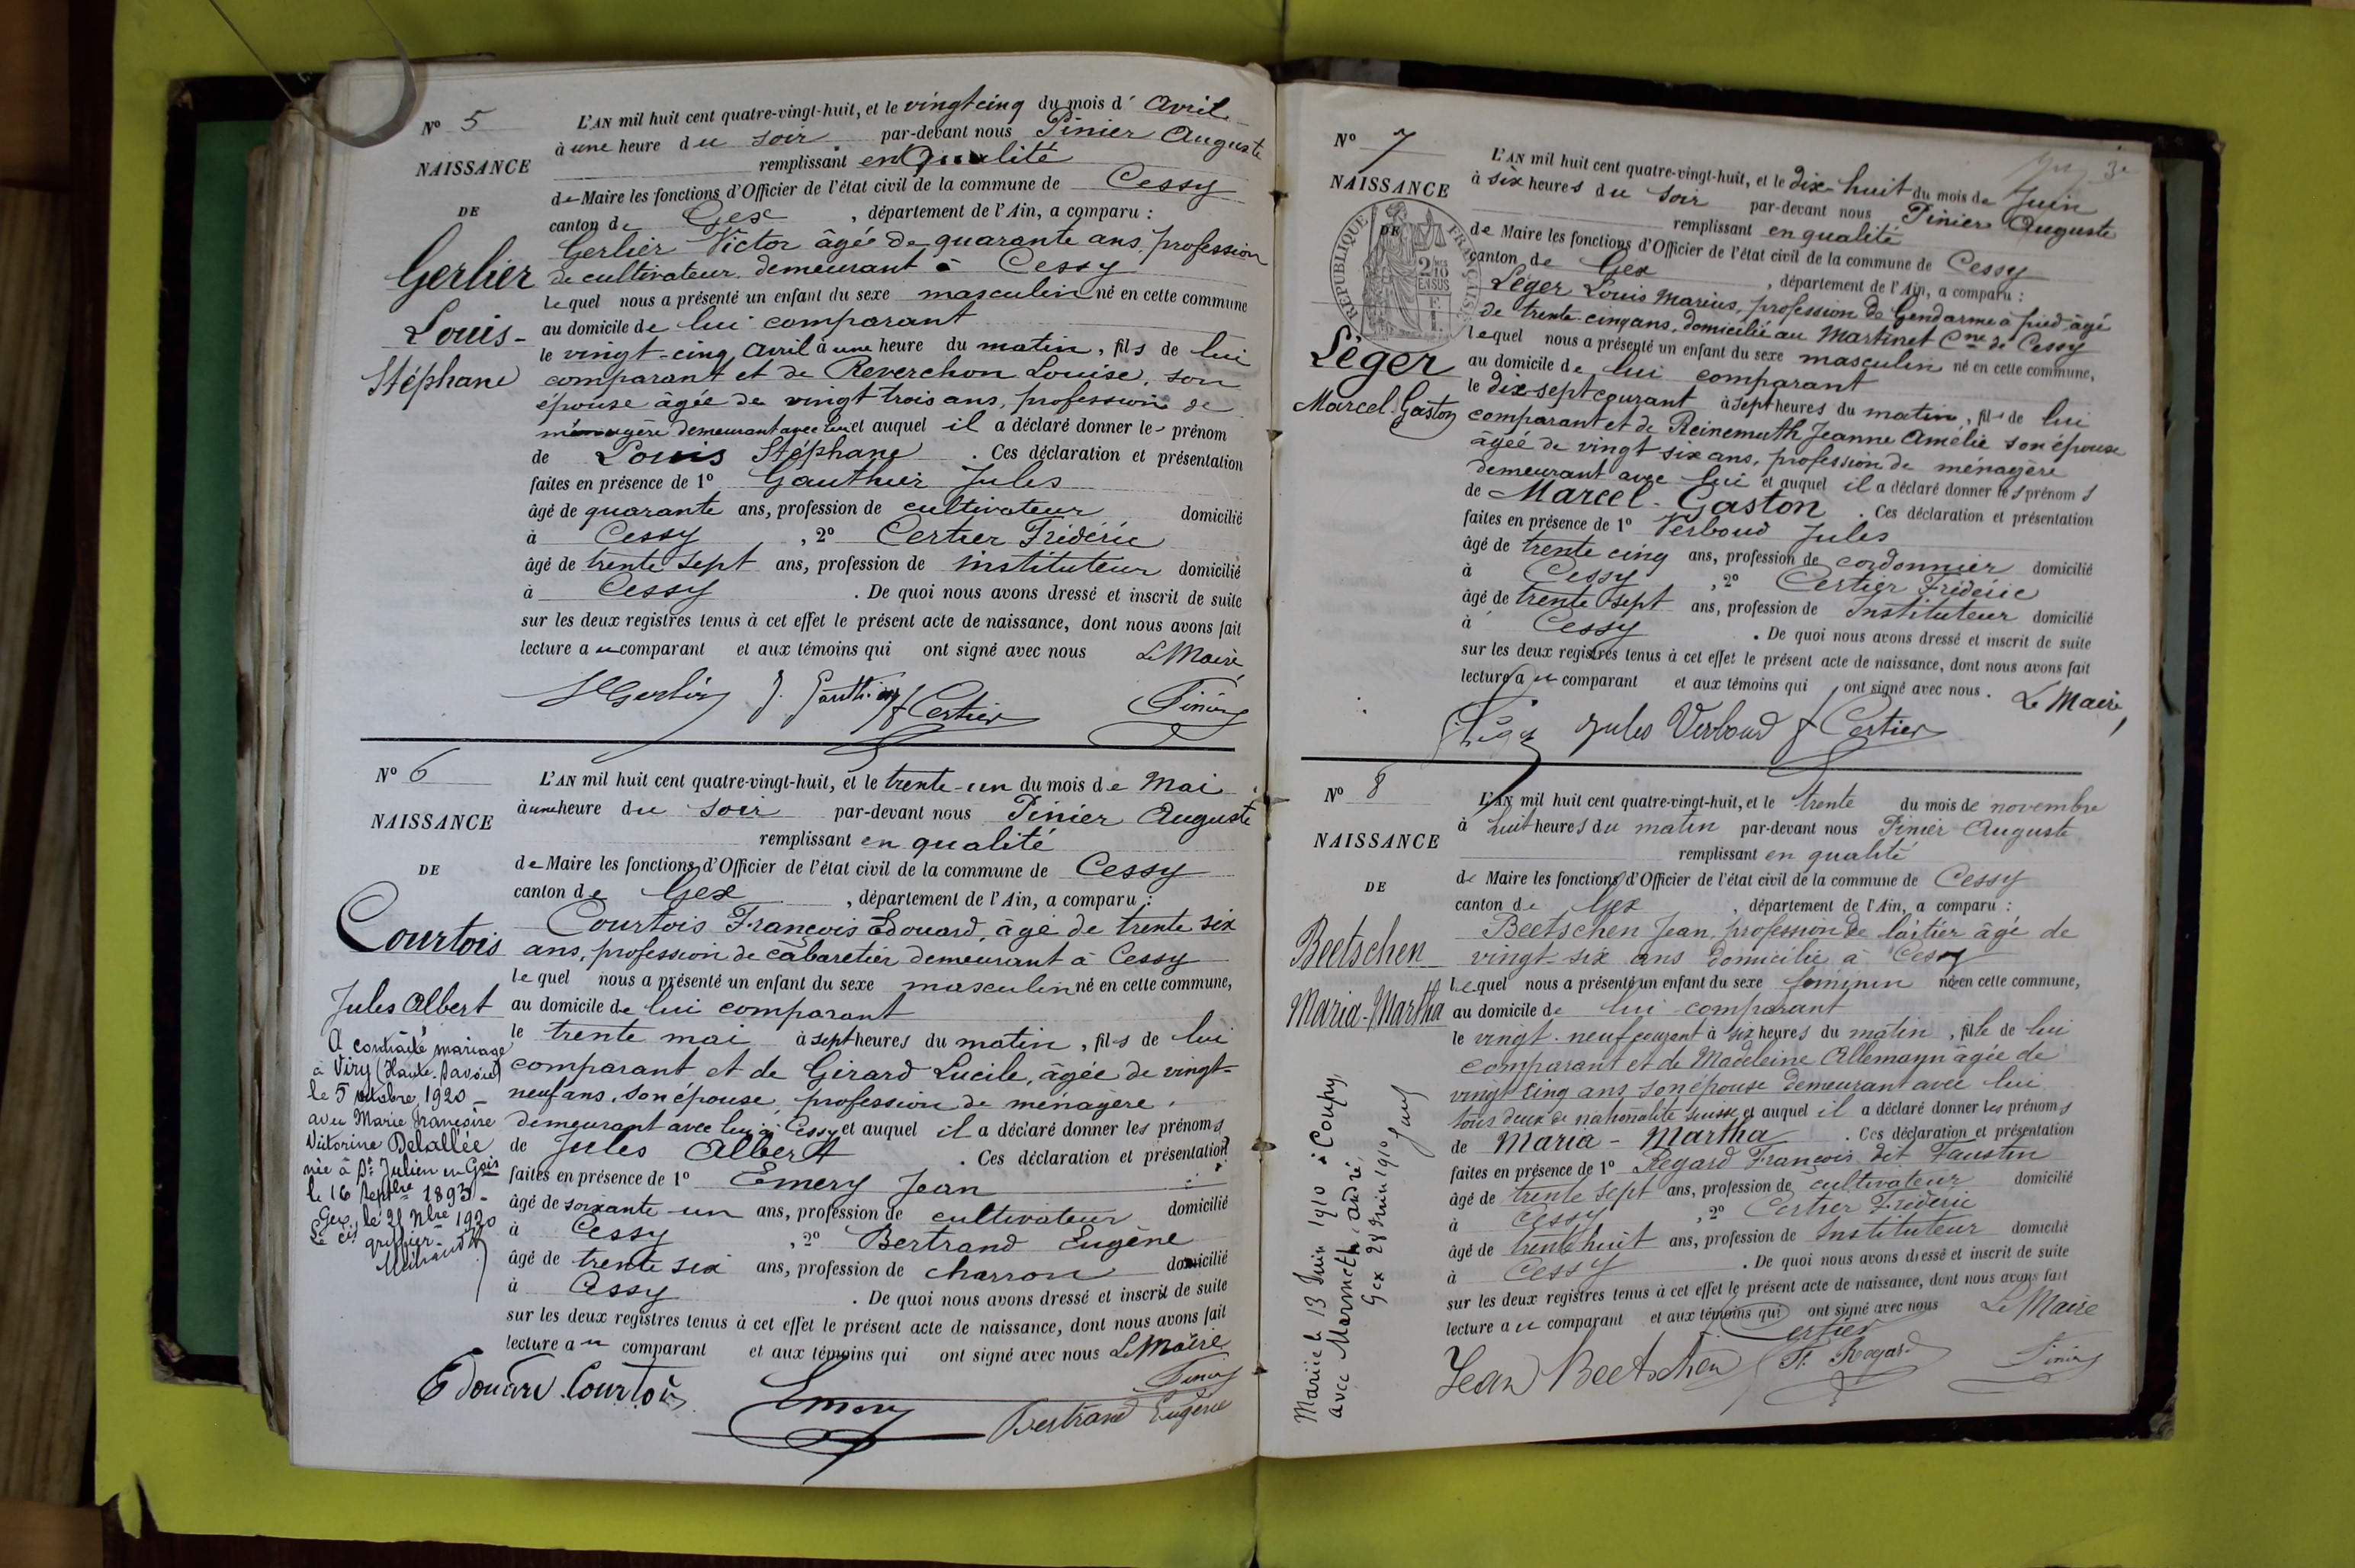 N° 5
NAISSANCE
DE
Gerlier
Louis-
Stéphane
L'AN mil huit cent quatre-vingt-huit, et le vingt cinq du mois d' Avril
à une heure du soir par-devant nous Pinier Auguste
remplissant en qualité
de Maire les fonctions d'Officier de l'état civil de la commune de Cessy
canton de Gex, département de l'Ain, a comparu :
Gerlier Victor âgée de quarante ans, profession
de cultivateur demeurant à Cessy
lequel nous a présenté un enfant du sexe masculin né en cette commune
au domicile de lui comparant
le vingt-cinq Avril à une heure du matin, fils de lui
comparant et de Reverchon Louise, son
épouse âgée de vingt trois ans, profession de
ménagère demeurant avec lui et auquel il a déclaré donner le prénom
de Louis Stéphane. Ces déclaration et présentation
faites en présence de 1° Gauthier Jules
âgé de quarante ans, profession de cultivateur domicilié
à Cessy, 2° Certier Frédéric
âgé de trente sept ans, profession de instituteur domicilié
à Cessy. De quoi nous avons dressé et inscrit de suite
sur les deux registres tenus à cet effet le présent acte de naissance, dont nous avons fait
lecture au comparant et aux témoins qui ont signé avec nous Le Maire
Gerlier J. Gauthier f Certier Pinier
N° 6
NAISSANCE
DE
Courtois
Jules Albert
A contracté mariage
à Viry (Haute-Savoie)
le 5 octobre 1920
avec Marie Françoise
Victorine Delallée
née à St Julien en Gois
le 16 Septbre 1893-
Gex, le 21 Nbre 1920
Le cis greffier-
L'AN mil huit cent quatre-vingt-huit, et le trente-un du mois de Mai
à une heure du soir par-devant nous Pinier Auguste
remplissant en qualité
de Maire les fonctions d'Officier de l'état civil de la commune de Cessy
canton de Gex, département de l'Ain, a comparu :
Courtois François Edouard, âgé de trente six
ans, profession de cabaretier demeurant à Cessy
lequel nous a présenté un enfant du sexe masculin né en cette commune,
au domicile de lui comparant
le trente mai à sept heures du matin, fils de lui
comparant et de Girard Lucile, âgée de vingt-
neuf ans, son épouse, profession de ménagère,
demeurant avec lui à Cessy et auquel il a déclaré donner les prénoms
de Jules Albert. Ces déclaration et présentation
faites en présence de 1° Emery Jean
âgé de soixante-un ans, profession de cultivateur domicilié
à Cessy, 2° Bertrand Eugène
âgé de trente six ans, profession de charron domicilié
à Cessy. De quoi nous avons dressé et inscrit de suite
sur les deux registres tenus à cet effet le présent acte de naissance, dont nous avons fait
lecture au comparant et aux témoins qui ont signé avec nous Le Maire
Edouard Courtois Emery Bertrand Eugène Pinier
N° 7
NAISSANCE
DE
RÉPUBLIQUE FRANÇAISE
Léger
Marcel Gaston
L'AN mil huit cent quatre-vingt-huit, et le dix-huit du mois de Juin
à six heures du soir par-devant nous Pinier Auguste
remplissant en qualité
de Maire les fonctions d'Officier de l'état civil de la commune de Cessy
canton de Gex, département de l'Ain, a comparu :
Léger Louis Marius, profession de Gendarme à pied, âgé
de trente-cinq ans, domicilié au Martinet Cne de Cessy
lequel nous a présenté un enfant du sexe masculin né en cette commune,
au domicile de lui comparant
le dix sept courant à sept heures du matin, fils de lui
comparant et de Reinemuth Jeanne Amélie son épouse
âgée de vingt six ans, profession de ménagère
demeurant avec lui et auquel il a déclaré donner les prénoms
de Marcel-Gaston. Ces déclaration et présentation
faites en présence de 1° Verboud Jules
âgé de trente cinq ans, profession de cordonnier domicilié
à Cessy, 2° Certier Frédéric
âgé de trente sept ans, profession de Instituteur domicilié
à Cessy. De quoi nous avons dressé et inscrit de suite
sur les deux registres tenus à cet effet le présent acte de naissance, dont nous avons fait
lecture au comparant et aux témoins qui ont signé avec nous. Le Maire,
Léger Jules Verboud f Certier
N° 8
NAISSANCE
DE
Beetschen
Maria-Martha
Mariée le 13 Juin 1910 à Coupy,
avec Marmeth André,
Gex 28 Juin 1910
L'AN mil huit cent quatre-vingt-huit, et le trente du mois de novembre
à huit heures du matin par-devant nous Pinier Auguste
remplissant en qualité
de Maire les fonctions d'Officier de l'état civil de la commune de Cessy
canton de Gex, département de l'Ain, a comparu :
Beetschen Jean, profession de laitier âgé de
vingt-six ans domicilié à Cessy
lequel nous a présenté un enfant du sexe féminin né en cette commune,
au domicile de lui comparant
le vingt-neuf courant à six heures du matin, fille de lui
comparant et de Madeleine Allemann âgée de
vingt cinq ans son épouse demeurant avec lui
tous deux de nationalité suisse et auquel il a déclaré donner les prénoms
de Maria-Martha. Ces déclaration et présentation
faites en présence de 1° Regard François dit Faustin
âgé de trente sept ans, profession de cultivateur domicilié
à Cessy, 2° Certier Frédéric
âgé de trente huit ans, profession de Instituteur domicilié
à Cessy. De quoi nous avons dressé et inscrit de suite
sur les deux registres tenus à cet effet le présent acte de naissance, dont nous avons fait
lecture au comparant et aux témoins qui ont signé avec nous Le Maire
Jean Beetschen Certier F. Regard Pinier